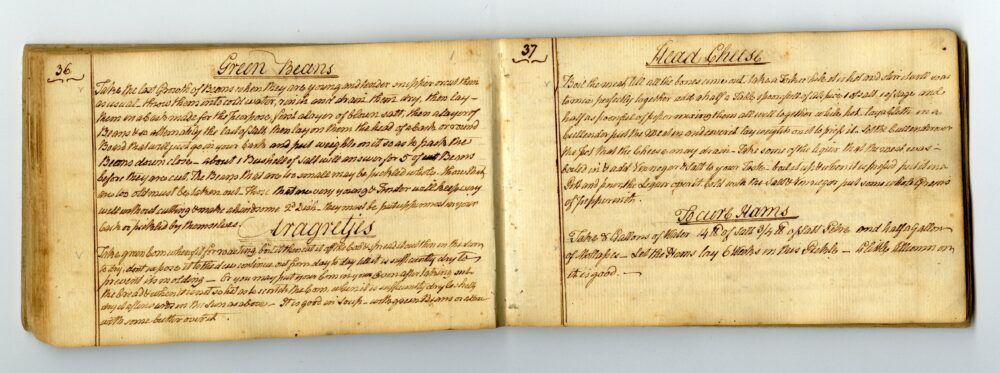 36
Green Beans
Take the last Growth of Beans when they are young and tender snip per or cut them
as usual. throw them into cold water, rinse and drain them dry, then lay
them in a cask made for the purpose, first a layer of blown salt, then a layer of
Beans & so alternately the last of Salt, then lay on them the head of a cask or round
Board that will just go in your cask and put weights on it so as to pack the
Beans down close - about 1 Bushell of salt will answer for 5 of cut Beans
before they are cut. The Beans that are too small may be pickled whole. Those that
are too old must be taken out - Those that are very young & Tender will keep very
well without cutting & make a handsome Dish. they must be put uppermost in your
cask or pickled by themselves
Take green Corn when fit for roasting, boil it then cut it off the Cob & spread it out thin in the sun
to dry, dont expose it to the dew, continue out from day to day till it is sufficiently dry to
prevent its molding - Or you may put your Corn in your Oven after taking out
the bread & when it is not so hot as to scorch the Corn, when it is sufficiently dry to shell
dry it afterwards in the Sun as above - It is good in Soup - with green Beans or alone
with some butter over it
37
Head Cheese
Boil the meat till all the bones come out. take a fork or
mince perfectly together add a half a Table spoonfull of allspice & of salt & of sage and
half a spoonfull of pepper mixing them all well together while hot. lay a cloth in a
Cullender put the meat in and several lay weights on it to press it. Set the Cullender over
the pot that the Cheese may drain - take some of the liquor that the meat was
boiled in & add Vinegar & salt to your Taste - boil it up & when it is pressed put it in a
Pot and pour the Liquor upon it, boil with the Salt & vinegar put some whole Grains
of pepper with
To cure Hams
Take 8 Gallons of Water 14 lb of Salt 3/4 lb of salt Petre and half a gallon
of Molasses - Let the Hams lay 6 Weeks in this Pickle - A little Allum in
it is good -